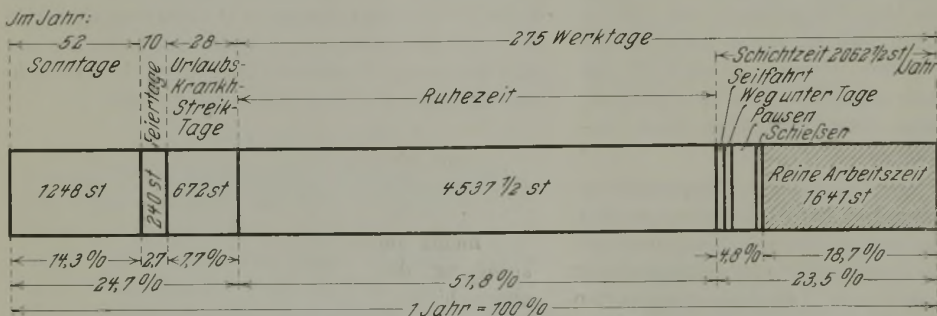 Im Jahr:
52 10 28 275 Werktage
Sonntage Feiertage Urlaubs- Krankh.- Streik- Tage
Ruhezeit
Schichtzeit 2062 1/2 st/Jahr
Seilfahrt
Weg unter Tage
Pausen
Schießen
1248 st 240 st 672 st 4537 1/2 st Reine Arbeitszeit 1641 st
14,3 % 2,7 7,7 % 4,8 % 18,7 %
24,7 % 51,8 % 23,5 %
1 Jahr = 100 %